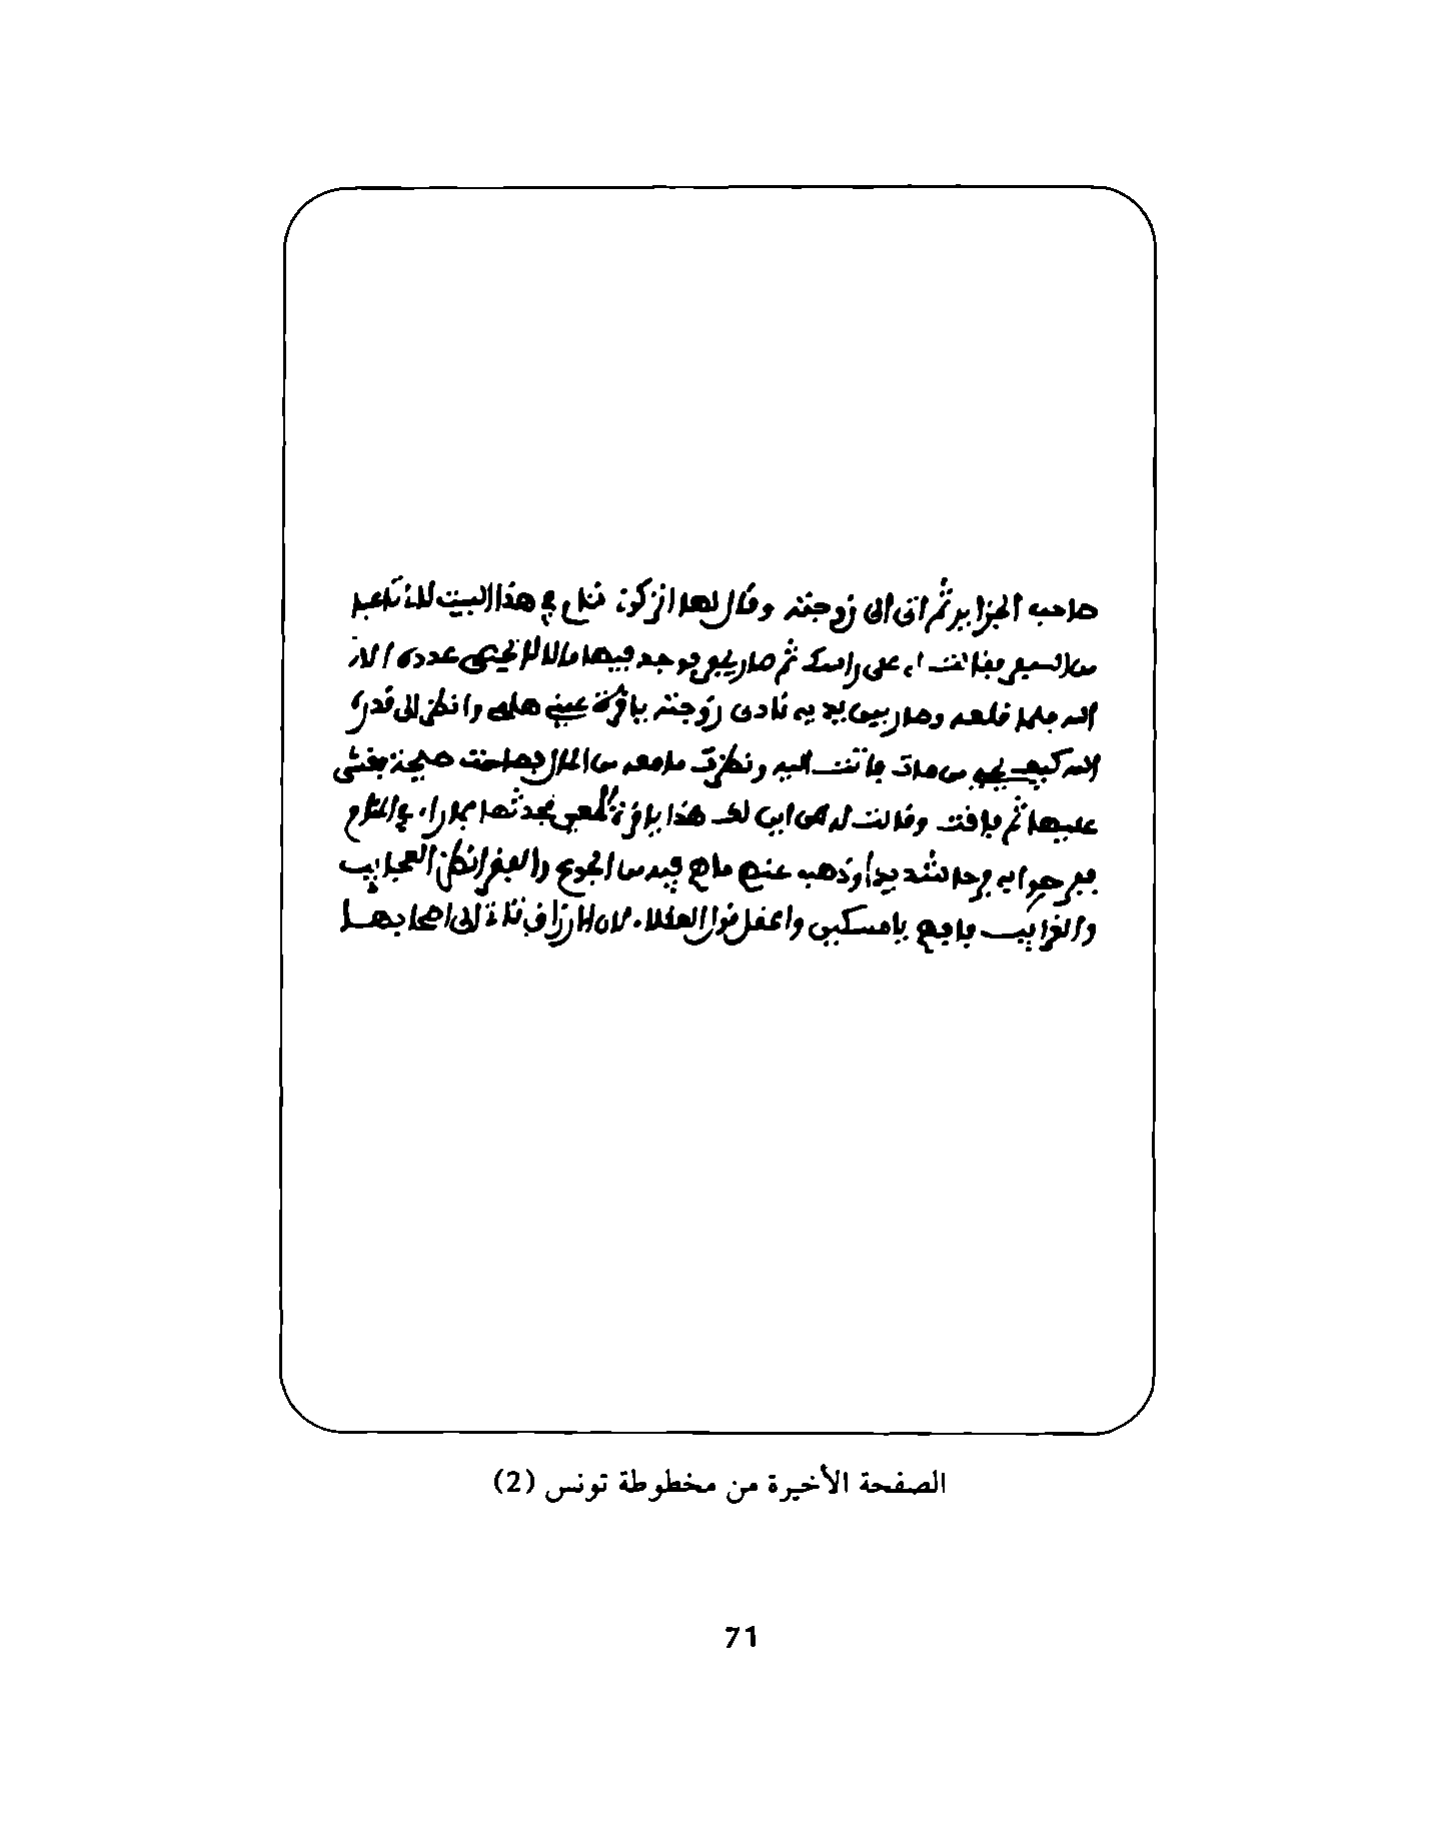 صاحب الجزاير ثم اتى الى زوجته وقال لها اتركون ننام في هذا البيت
من السفر فقالت له على راسك ثم صار يفر فوجد فيها مالا لا يحصى عدده الا
الله فلما قلعه وصار بين يديه نادى زوجته يا قرة عيني هلمي وانظري الى قدرة
الله كيف يحيي من مات فاتت اليه ونظرت ما معه من المال فصاحت صيحة فغشي
عليها ثم فاقت وقالت له من اين لك هذا يا قرة العين فحدثها بما راى في المنام
ففرحوا به فرحا شديدا وذهب عنهم ما هم فيه من الجوع والفقر انظر العجايب
والغرايب فافهم يا مسكين واعقل قول العقلاء لان الارزاق تاتي الى اصحابها
الصفحة الأخيرة من مخطوطة تونس (2)
71